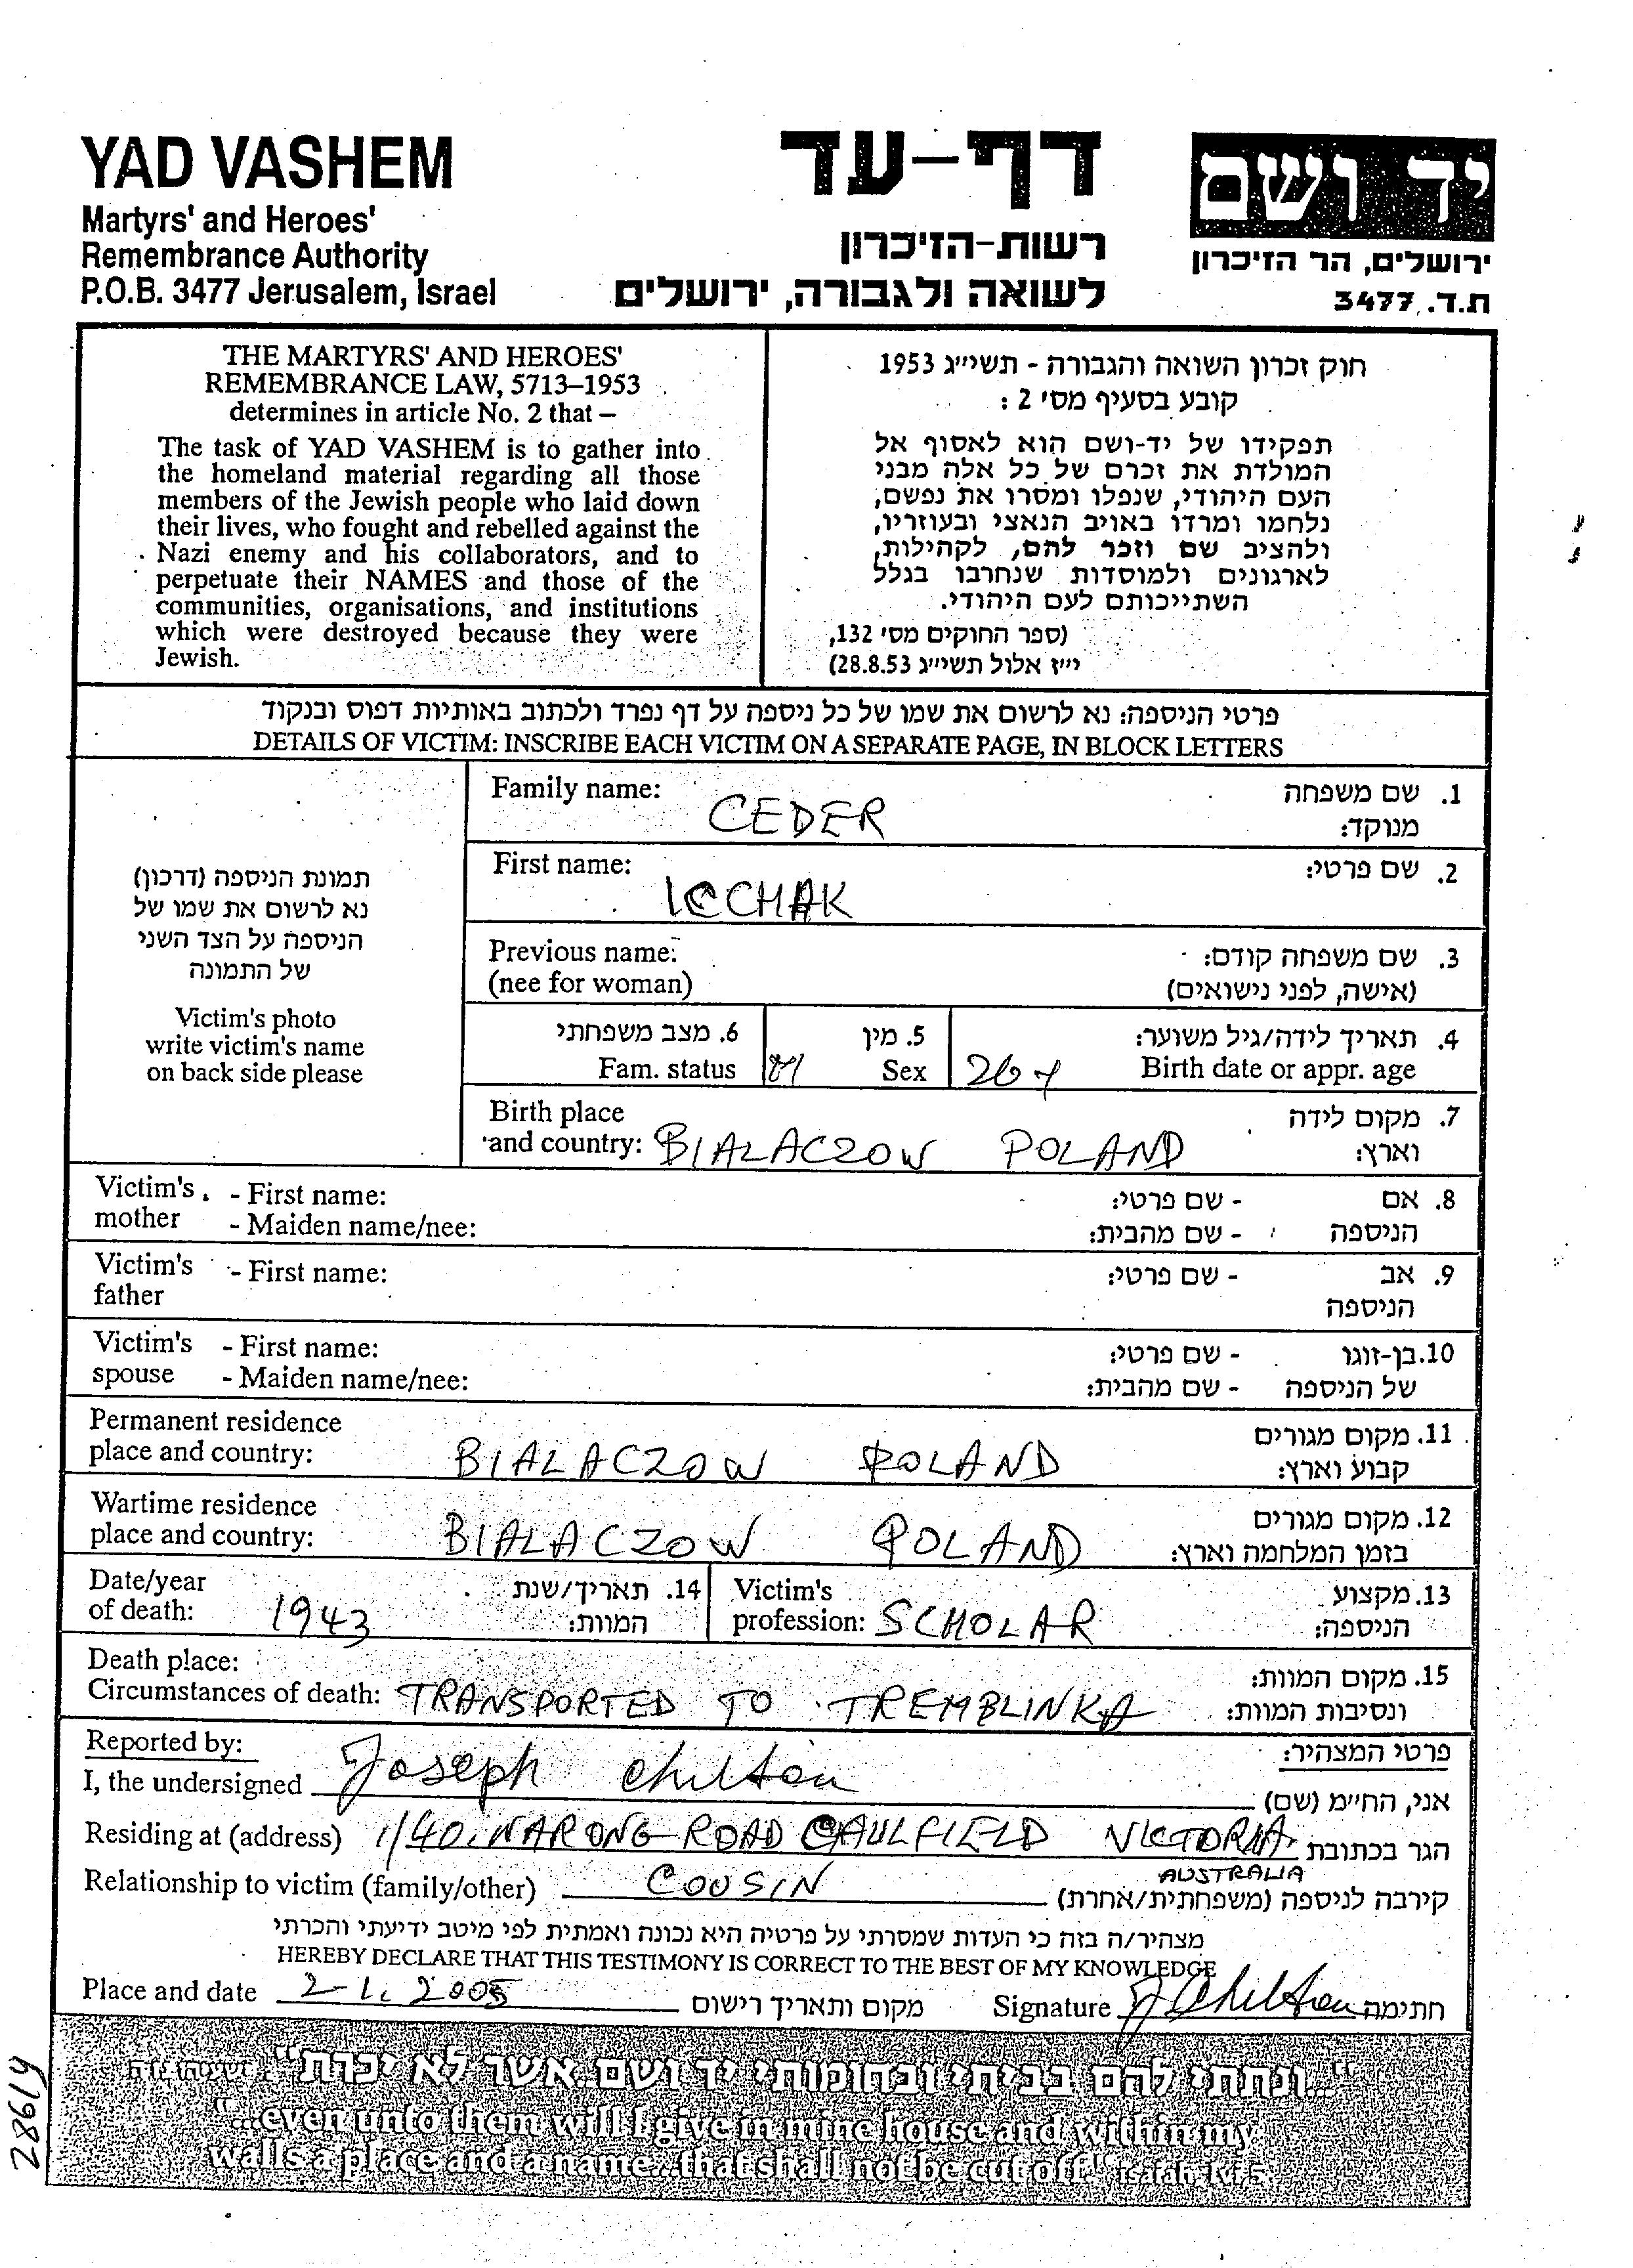 YAD VASHEM
Martyrs' and Heroes'
Remembrance Authority
P.O.B. 3477 Jerusalem, Israel
דף-עד
רשות-הזיכרון
לשואה ולגבורה, ירושלים
יד ושם
ירושלים, הר הזיכרון
ת.ד. 3477
THE MARTYRS' AND HEROES'
REMEMBRANCE LAW, 5713–1953
determines in article No. 2 that –
The task of YAD VASHEM is to gather into
the homeland material regarding all those
members of the Jewish people who laid down
their lives, who fought and rebelled against the
Nazi enemy and his collaborators, and to
perpetuate their NAMES and those of the
communities, organisations, and institutions
which were destroyed because they were
Jewish.
חוק זכרון השואה והגבורה - תשי״ג 1953
קובע בסעיף מס׳ 2 :
תפקידו של יד-ושם הוא לאסוף אל
המולדת את זכרם של כל אלה מבני
העם היהודי, שנפלו ומסרו את נפשם,
נלחמו ומרדו באויב הנאצי ובעוזריו,
ולהציב שם וזכר להם, לקהילות,
לארגונים ולמוסדות שנחרבו בגלל
השתייכותם לעם היהודי.
(ספר החוקים מס׳ 132,
י״ז אלול תשי״ג 28.8.53)
פרטי הניספה: נא לרשום את שמו של כל ניספה על דף נפרד ולכתוב באותיות דפוס ובנקוד
DETAILS OF VICTIM: INSCRIBE EACH VICTIM ON A SEPARATE PAGE, IN BLOCK LETTERS
תמונת הניספה (דרכון)
נא לרשום את שמו של
הניספה על הצד השני
של התמונה
Victim's photo
write victim's name
on back side please
Family name: CEDER 1. שם משפחה
מנוקד:
First name: ICCHAK 2. שם פרטי:
Previous name: 3. שם משפחה קודם:
(nee for woman) (אישה, לפני נישואים)
6. מצב משפחתי 5. מין 4. תאריך לידה/גיל משוער:
Fam. status M Sex 26 y Birth date or appr. age
Birth place 7. מקום לידה
and country: BIALACZOW POLAND וארץ:
Victim's - First name: - שם פרטי: 8. אם
mother - Maiden name/nee: - שם מהבית: הניספה
Victim's - First name: - שם פרטי: 9. אב
father הניספה
Victim's - First name: - שם פרטי: 10. בן-זוגו
spouse - Maiden name/nee: - שם מהבית: של הניספה
Permanent residence 11. מקום מגורים
place and country: BIALACZOW POLAND קבוע וארץ:
Wartime residence 12. מקום מגורים
place and country: BIALACZOW POLAND בזמן המלחמה וארץ:
Date/year 14. תאריך/שנת Victim's 13. מקצוע
of death: 1943 המוות: profession: SCHOLAR הניספה:
Death place: 15. מקום המוות:
Circumstances of death: TRANSPORTED TO TREMBLINKA ונסיבות המוות:
Reported by: פרטי המצהיר:
I, the undersigned Joseph Chilton אני, החיימ (שם)
Residing at (address) 1/40. NARONG ROAD CAULFIELD VICTORIA. הגר בכתובת
AUSTRALIA
Relationship to victim (family/other) COUSIN קירבה לניספה (משפחתית/אחרת)
מצהיר/ה בזה כי העדות שמסרתי על פרטיה היא נכונה ואמתית לפי מיטב ידיעתי והכרתי
HEREBY DECLARE THAT THIS TESTIMONY IS CORRECT TO THE BEST OF MY KNOWLEDGE
Place and date 2-1. 2005 מקום ותאריך רישום Signature J Chilton חתימה
"...ונתתי להם בביתי ובחומותי יד ושם...אשר לא יכרת" ישעיהו נו ה
"...even unto them will I give in mine house and within my
walls a place and a name...that shall not be cut off" isaiah, lvi 5